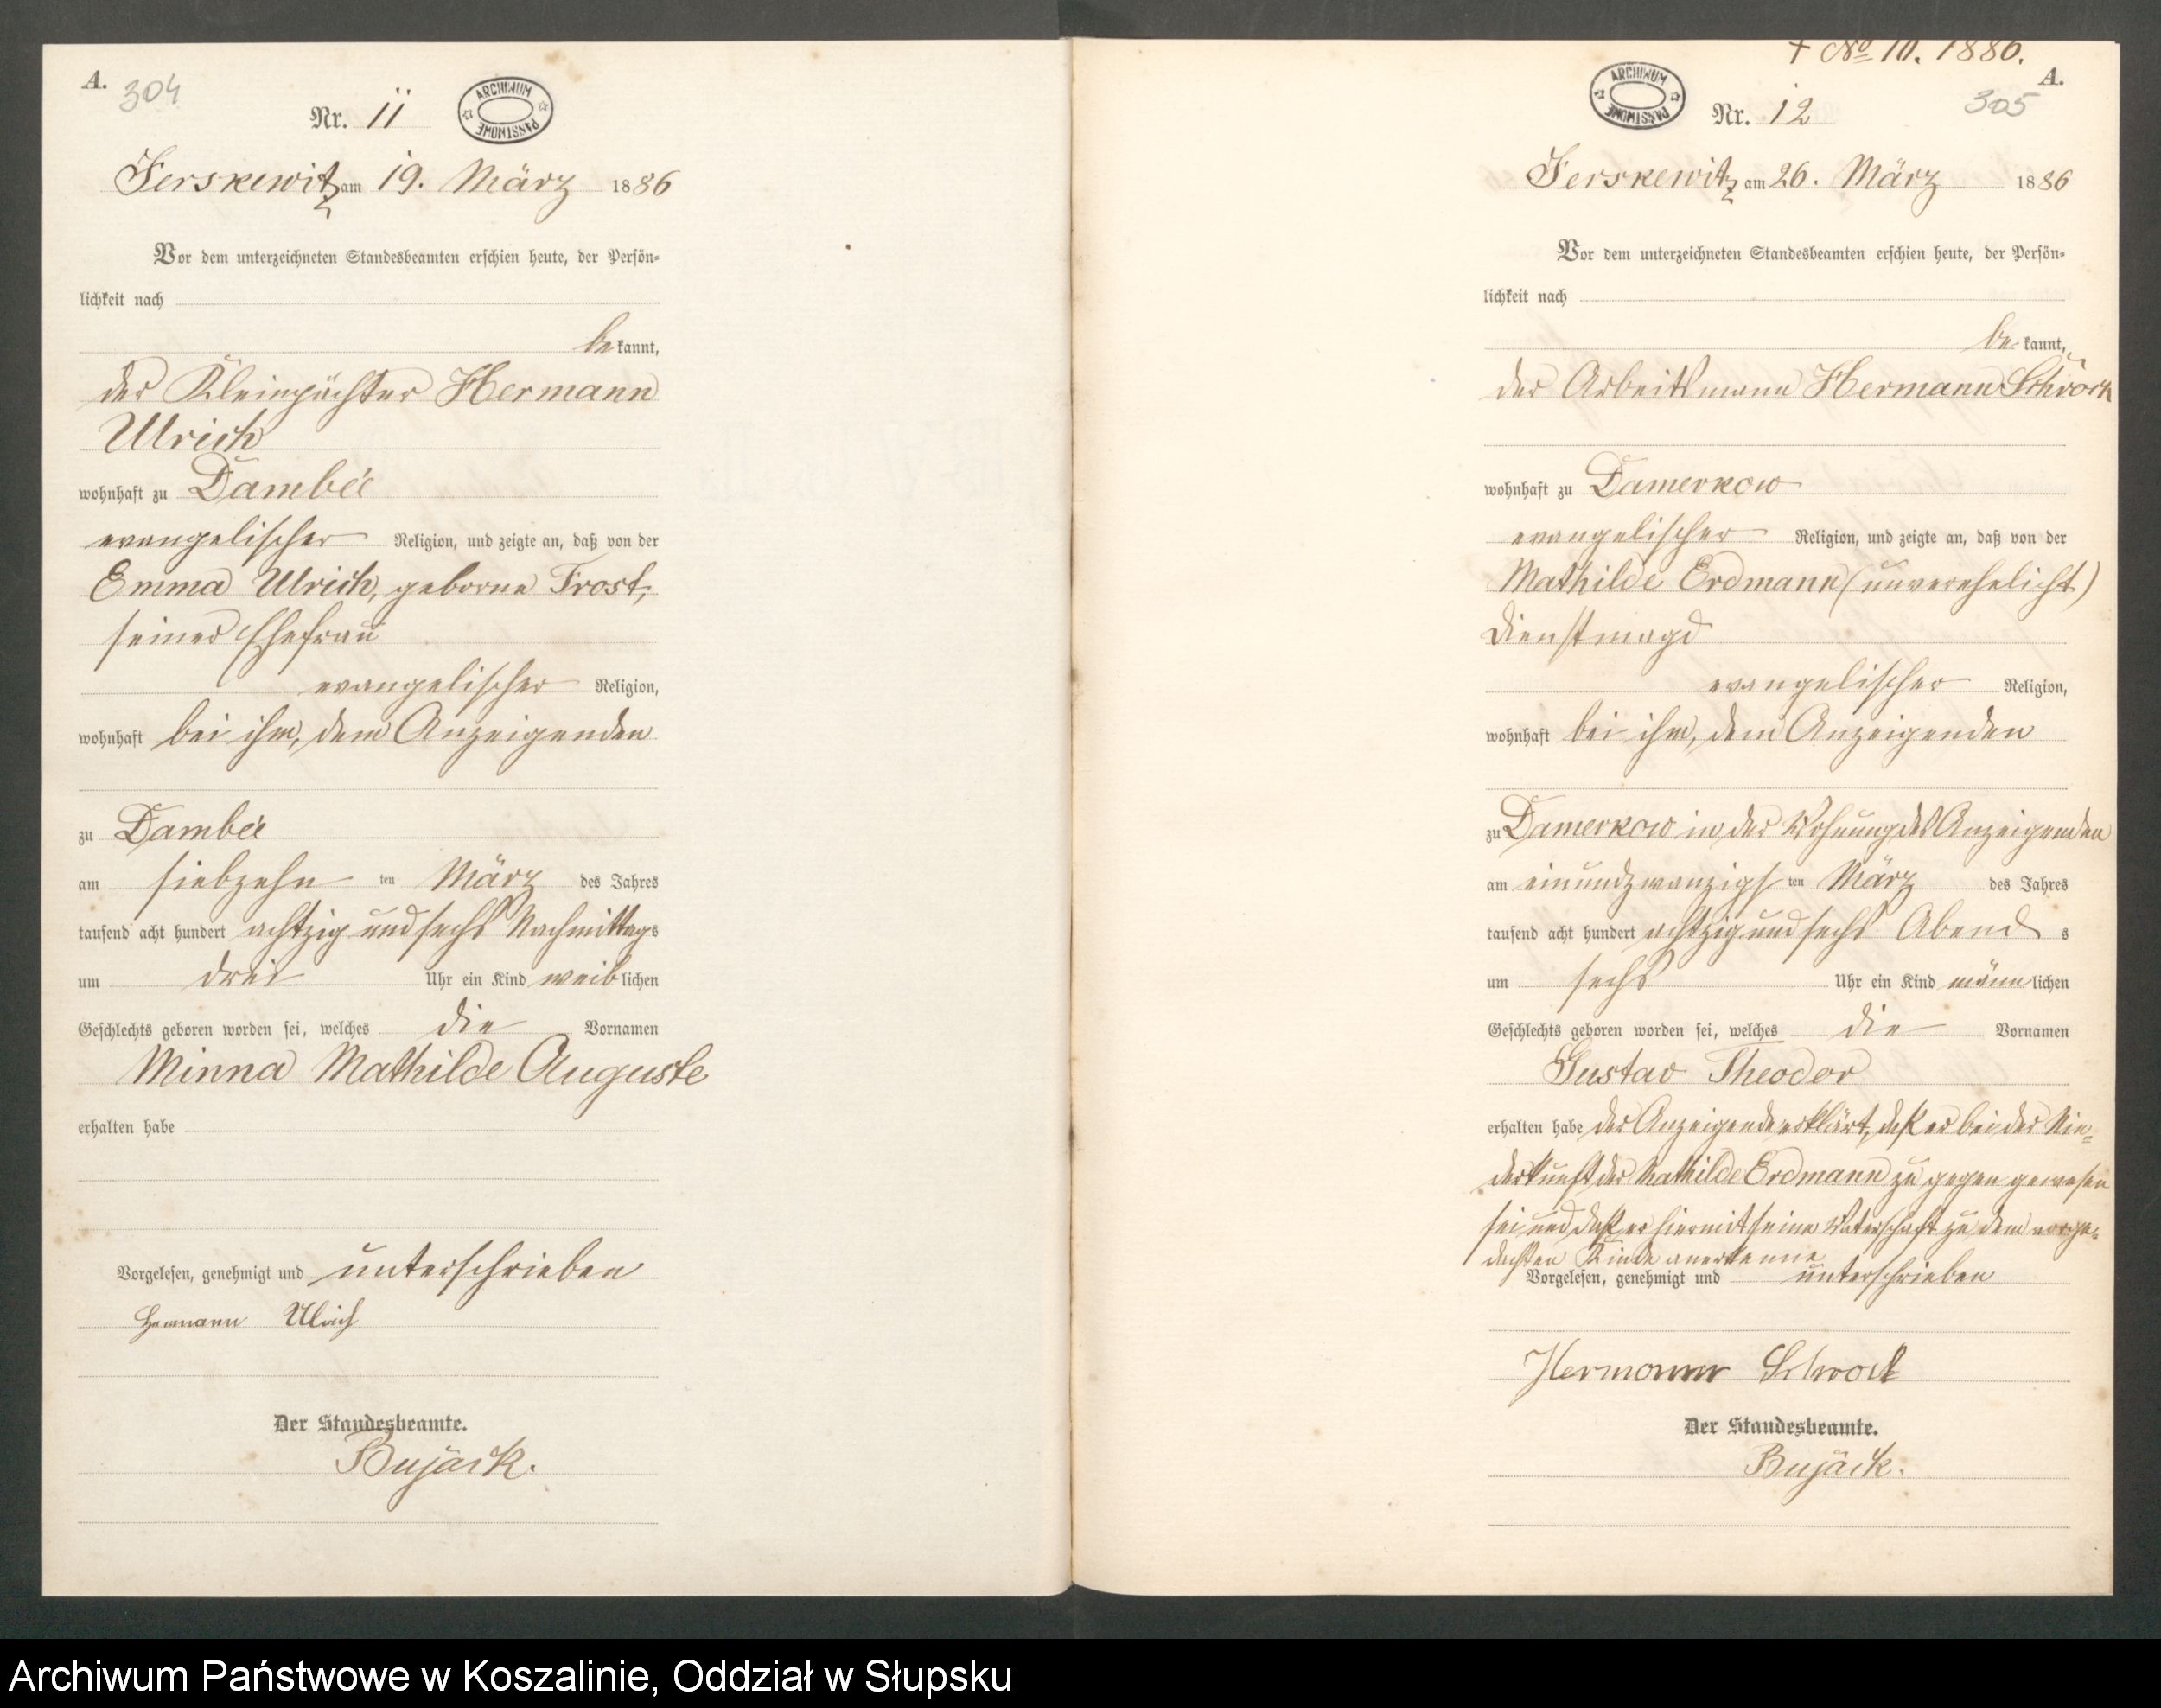 A.
304
Nr. 11
ARCHIWUM PAŃSTWOWE
Jerskewitz am 19. März 1886
Vor dem unterzeichneten Standesbeamten erschien heute, der Persön-
lichkeit nach
be kannt,
der Kleinpächter Hermann
Ulrich
wohnhaft zu Dambée
evangelischer Religion, und zeigte an, daß von der
Emma Ulrich, geborne Frost,
seiner Ehefrau
evangelischer Religion,
wohnhaft bei ihm, dem Anzeigenden
zu Dambée
am siebzehn ten März des Jahres
tausend acht hundert achtzig und sechs Nachmittags
um drei Uhr ein Kind weiblichen
Geschlechts geboren worden sei, welches die Vornamen
Minna Mathilde Auguste
erhalten habe
Vorgelesen, genehmigt und unterschrieben
Hermann Ulrich
Der Standesbeamte.
Bujäck.
+ No 10. 1886.
A.
305
ARCHIWUM PAŃSTWOWE
Nr. 12
Jerskewitz am 26. März 1886
Vor dem unterzeichneten Standesbeamten erschien heute, der Persön-
lichkeit nach
be kannt,
der Arbeitsmann Hermann Schrock
wohnhaft zu Damerkow
evangelischer Religion, und zeigte an, daß von der
Mathilde Erdmann (unverehelicht)
Dienstmagd
evangelischer Religion,
wohnhaft bei ihm, dem Anzeigenden
zu Damerkow in der Wohnung des Anzeigenden
am einundzwanzigsten März des Jahres
tausend acht hundert achtzig und sechs Abends
um sechs Uhr ein Kind männlichen
Geschlechts geboren worden sei, welches die Vornamen
Gustav Theodor
erhalten habe der Anzeigende erklärt, daß er bei der Nie-
derkunft der Mathilde Erdmann zu gegen gewesen
sei und daß er hiermit seine Vaterschaft zu dem vorge-
dachten Kinde anerkenne
Vorgelesen, genehmigt und unterschrieben
Hermann Schrock
Der Standesbeamte.
Bujäck.
Archiwum Państwowe w Koszalinie, Oddział w Słupsku